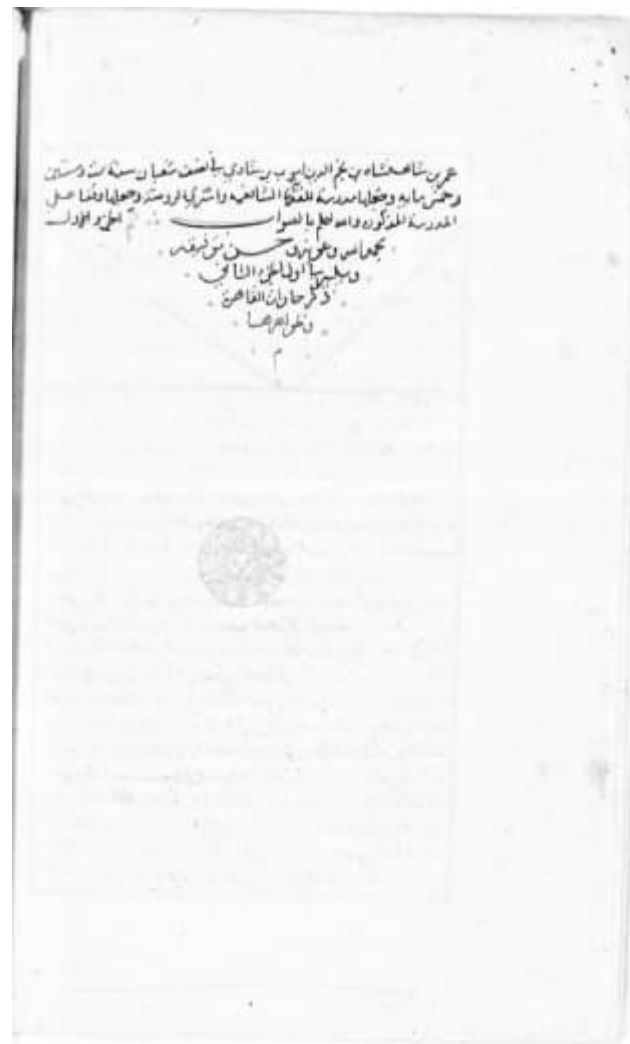 عمر بن شاهنشاه بن نجم الدين ايوب بن شادي في نصف شعبان سنة ست وستين
وخمس مايه وجعلها مدرسة للفقها الشافعيه واشتري الروضة وجعلها وقفا على
المدرسة المذكوره والله اعلم بالصواب تم الجزء الاول
بحمد الله وعونه وحسن توفيقه
ويليه اول الجزء الثاني
ذكر حارات القاهرة
وظواهرها
م